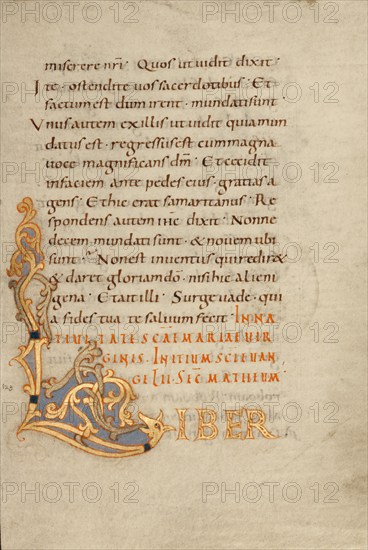 miserere nri. Quos ut vidit dixit
Ite. ostendite vos sacerdotibus. Et
factum est dum irent. mundati sunt
Unus autem ex illis ut vidit quia mun
datus est. regressus est cum magna
voce magnificans dm. Et cecidit
in faciem ante pedes eius. gratias a
gens. Et hic erat samaritanus. Re
spondens autem ihc dixit. Nonne
decem mundati sunt. & novem ubi
sunt. Non est inventus qui redire&
& dar& gloriam do. nisi hic alieni
gena. Et ait illi. Surge vade. qui
a fides tua te salvum fecit. IN NA
TIVITATE SCAE MARIAE VIR
GINIS. INITIUM SCI EVAN
GELII. SEC MATHEUM
LIBER
PHOTO 12